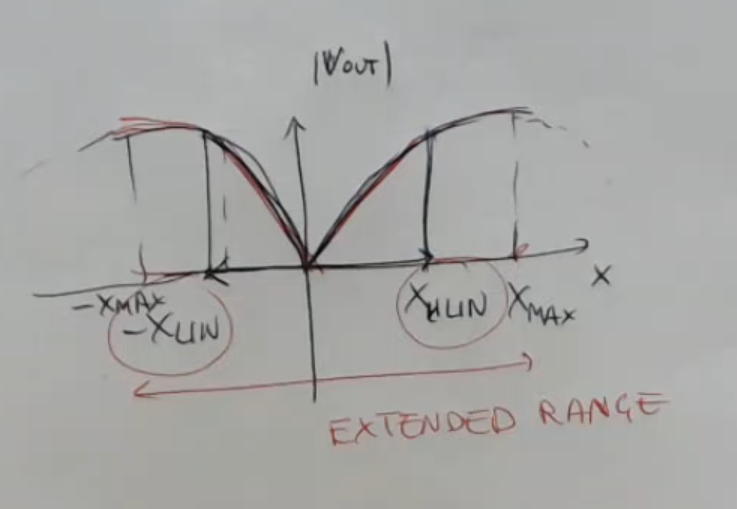 |VOUT|
-XMAX
-XLIN
XLIN
XMAX
X
EXTENDED RANGE